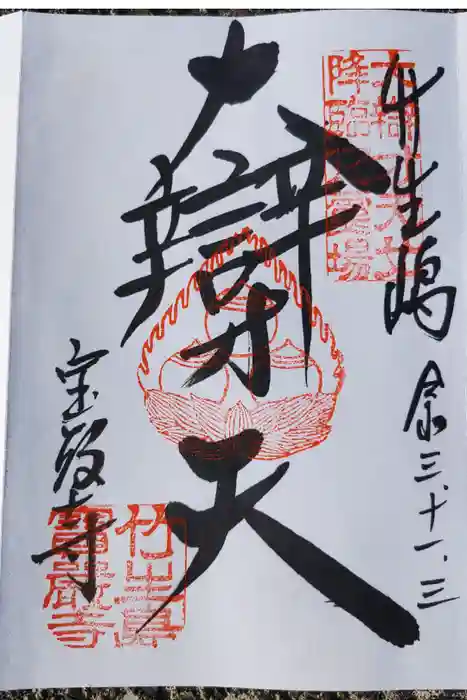 竹生嶋
令三.十一.三
大辯才天
宝厳寺
大辯才天女
降臨
場
竹生島
寶嚴寺